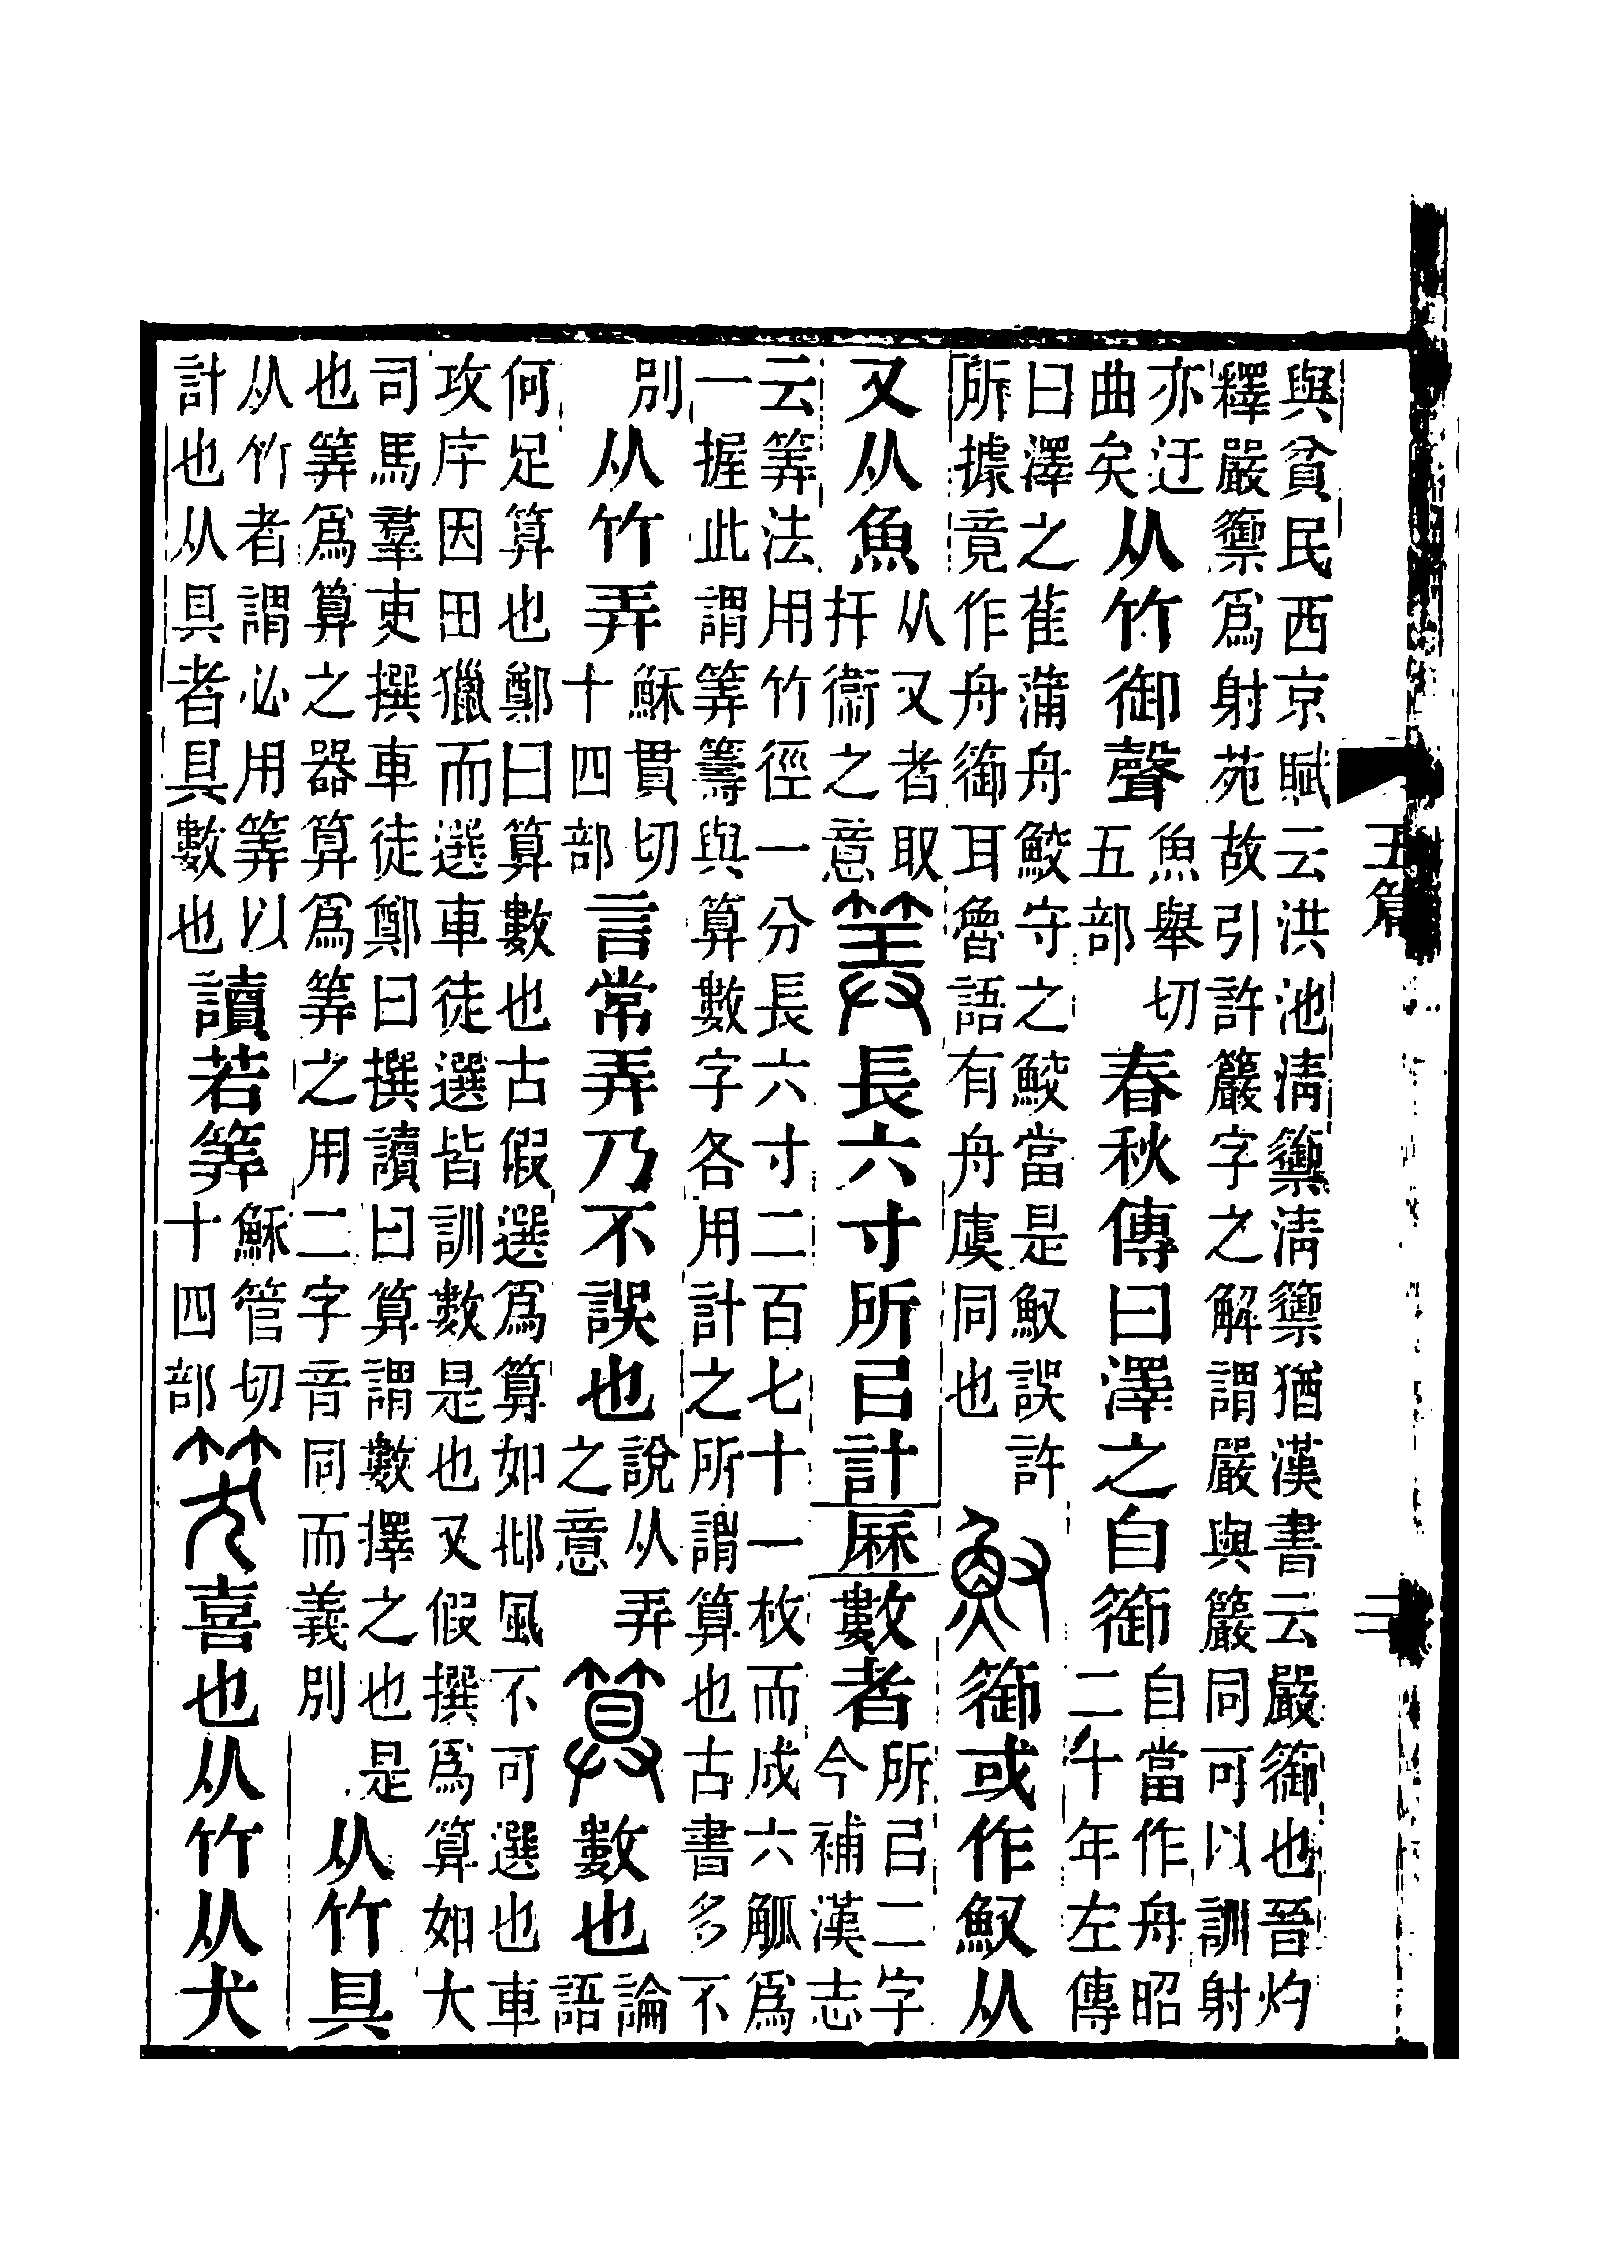 與貧民西京賦云洪池淸籞淸籞猶漢書云嚴篽也晉灼
釋嚴籞爲射苑故引許䉷字之解謂嚴與䉷同可以訓射
亦迂曲矣从竹御聲魚舉切五部春秋傳曰澤之自篽自當作舟昭二十年左傳
曰澤之萑蒲舟鮫守之鮫當是䱷誤許所據竟作舟篽耳魯語有舟虞同也䱷篽或作䱷从
又从魚从又者取扞衞之意筭長六寸所㠯計厤數者所㠯二字今補漢志
云筭法用竹徑一分長六寸二百七十一枚而成六觚爲
一握此謂筭籌與算數字各用計之所謂算也古書多不
別从竹弄蘇貫切十四部言常弄乃不誤也說从弄之意算數也論語
何足算也鄭曰算數也古假選爲算如邶風不可選也車
攻序因田獵而選車徒選皆訓數是也又假撰爲算如大
司馬羣吏撰車徒鄭曰撰讀曰算謂數擇之也是也筭爲算之器算爲筭之用二字音同而義別从竹具
从竹者謂必用筭以計也从具者具數也讀若筭蘇管切十四部笑喜也从竹从犬
五篇